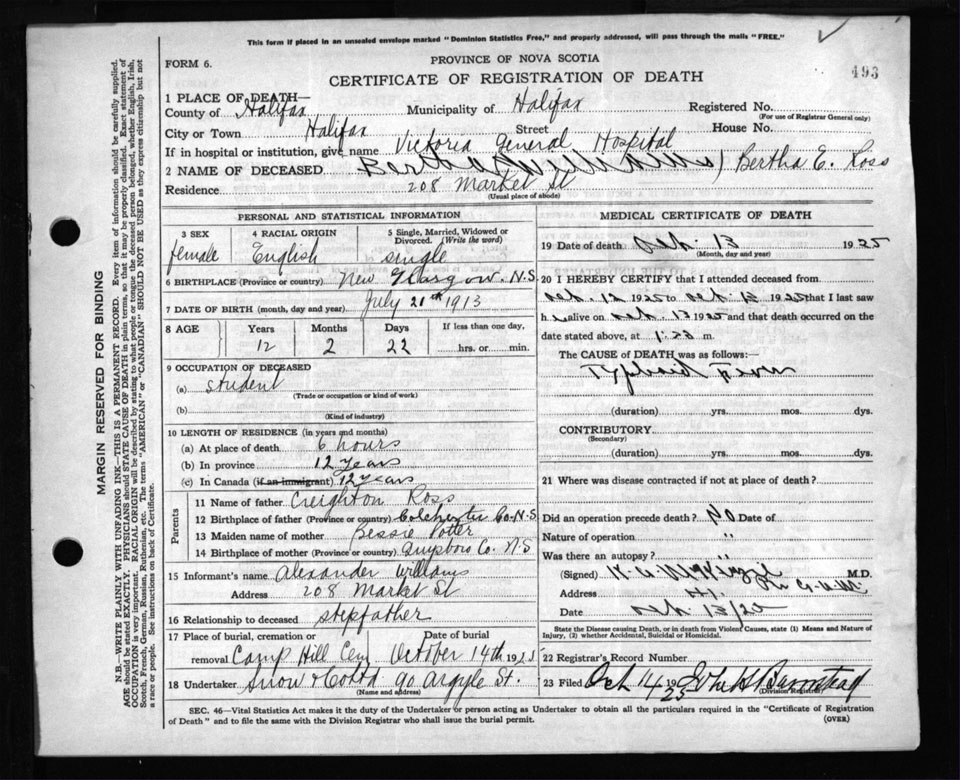 This form if placed in an unsealed envelope marked "Dominion Statistics Free," and properly addressed, will pass through the mails "FREE."
FORM 6.
PROVINCE OF NOVA SCOTIA
493
CERTIFICATE OF REGISTRATION OF DEATH
1 PLACE OF DEATH—
County of Halifax Municipality of Halifax Registered No.
(For use of Registrar General only)
City or Town Halifax Street House No.
If in hospital or institution, give name Victoria General Hospital
2 NAME OF DECEASED Bertha Williams) Bertha E. Ross
Residence 208 Market St
(Usual place of abode)
PERSONAL AND STATISTICAL INFORMATION
3 SEX 4 RACIAL ORIGIN 5 Single, Married, Widowed or Divorced. (Write the word)
female English single
6 BIRTHPLACE (Province or country) New Glasgow. N.S.
7 DATE OF BIRTH (month, day and year) July 21st 1913
8 AGE Years Months Days If less than one day,
12 2 22 hrs. or min.
9 OCCUPATION OF DECEASED
(a) student
(Trade or occupation or kind of work)
(b)
(Kind of industry)
10 LENGTH OF RESIDENCE (in years and months)
(a) At place of death 6 hours
(b) In province 12 years
(c) In Canada (if an immigrant) 12 years
Parents
11 Name of father Creighton Ross
12 Birthplace of father (Province or country) Colchester Co. N.S.
13 Maiden name of mother Bessie Potter
14 Birthplace of mother (Province or country) Guysboro Co. N.S
15 Informant's name Alexander Williams
Address 208 Market St
16 Relationship to deceased stepfather
17 Place of burial, cremation or Date of burial
removal Camp Hill Cem October 14th 1925
18 Undertaker Snow & Co Ltd 90 Argyle St.
(Name and address)
MEDICAL CERTIFICATE OF DEATH
19 Date of death Oct. 13 1925
(Month, day and year)
20 I HEREBY CERTIFY that I attended deceased from
Oct. 12 1925 to Oct. 13 1925 that I last saw
h alive on Oct. 13 1925 and that death occurred on the
date stated above, at m.
The CAUSE OF DEATH was as follows:
Typhoid Fever
(duration) yrs. mos. dys.
CONTRIBUTORY
(Secondary)
(duration) yrs. mos. dys.
21 Where was disease contracted if not at place of death?
Did an operation precede death? No Date of
Nature of operation "
Was there an autopsy? "
(Signed) M.D.
Address
Date Oct. 13/25
State the Disease causing Death, or in death from Violent Causes, state (1) Means and Nature of
Injury, (2) whether Accidental, Suicidal or Homicidal.
22 Registrar's Record Number
23 Filed Oct 14 1925 John H Barnstead
(Division Registrar)
SEC. 46—Vital Statistics Act makes it the duty of the Undertaker or person acting as Undertaker to obtain all the particulars required in the "Certificate of Registration
of Death" and to file the same with the Division Registrar who shall issue the burial permit.
(OVER)
MARGIN RESERVED FOR BINDING
N.B.—WRITE PLAINLY WITH UNFADING INK—THIS IS A PERMANENT RECORD. Every item of information should be carefully supplied.
AGE should be stated EXACTLY. PHYSICIANS should STATE CAUSE OF DEATH in plain terms, so that it may be properly classified. Exact statement of
OCCUPATION is very important. RACIAL ORIGIN will be described by stating to what people or tongue the deceased person belonged, whether English, Irish,
Scotch, French, German, Russian, Ruthenian, etc. The terms "AMERICAN" or "CANADIAN" SHOULD NOT BE USED as they express citizenship but not
a race or people. See instructions on back of Certificate.